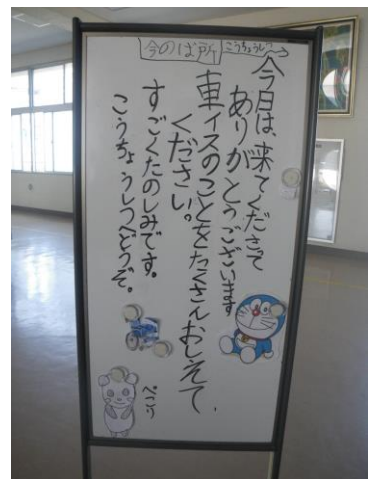 今のば所
こうちょうしつ
今日は、来てくださって
ありがとうございます
車イスのことをたくさんおしえて
ください。
すごくたのしみです。
こうちょうしつへどうぞ。
ぺこり